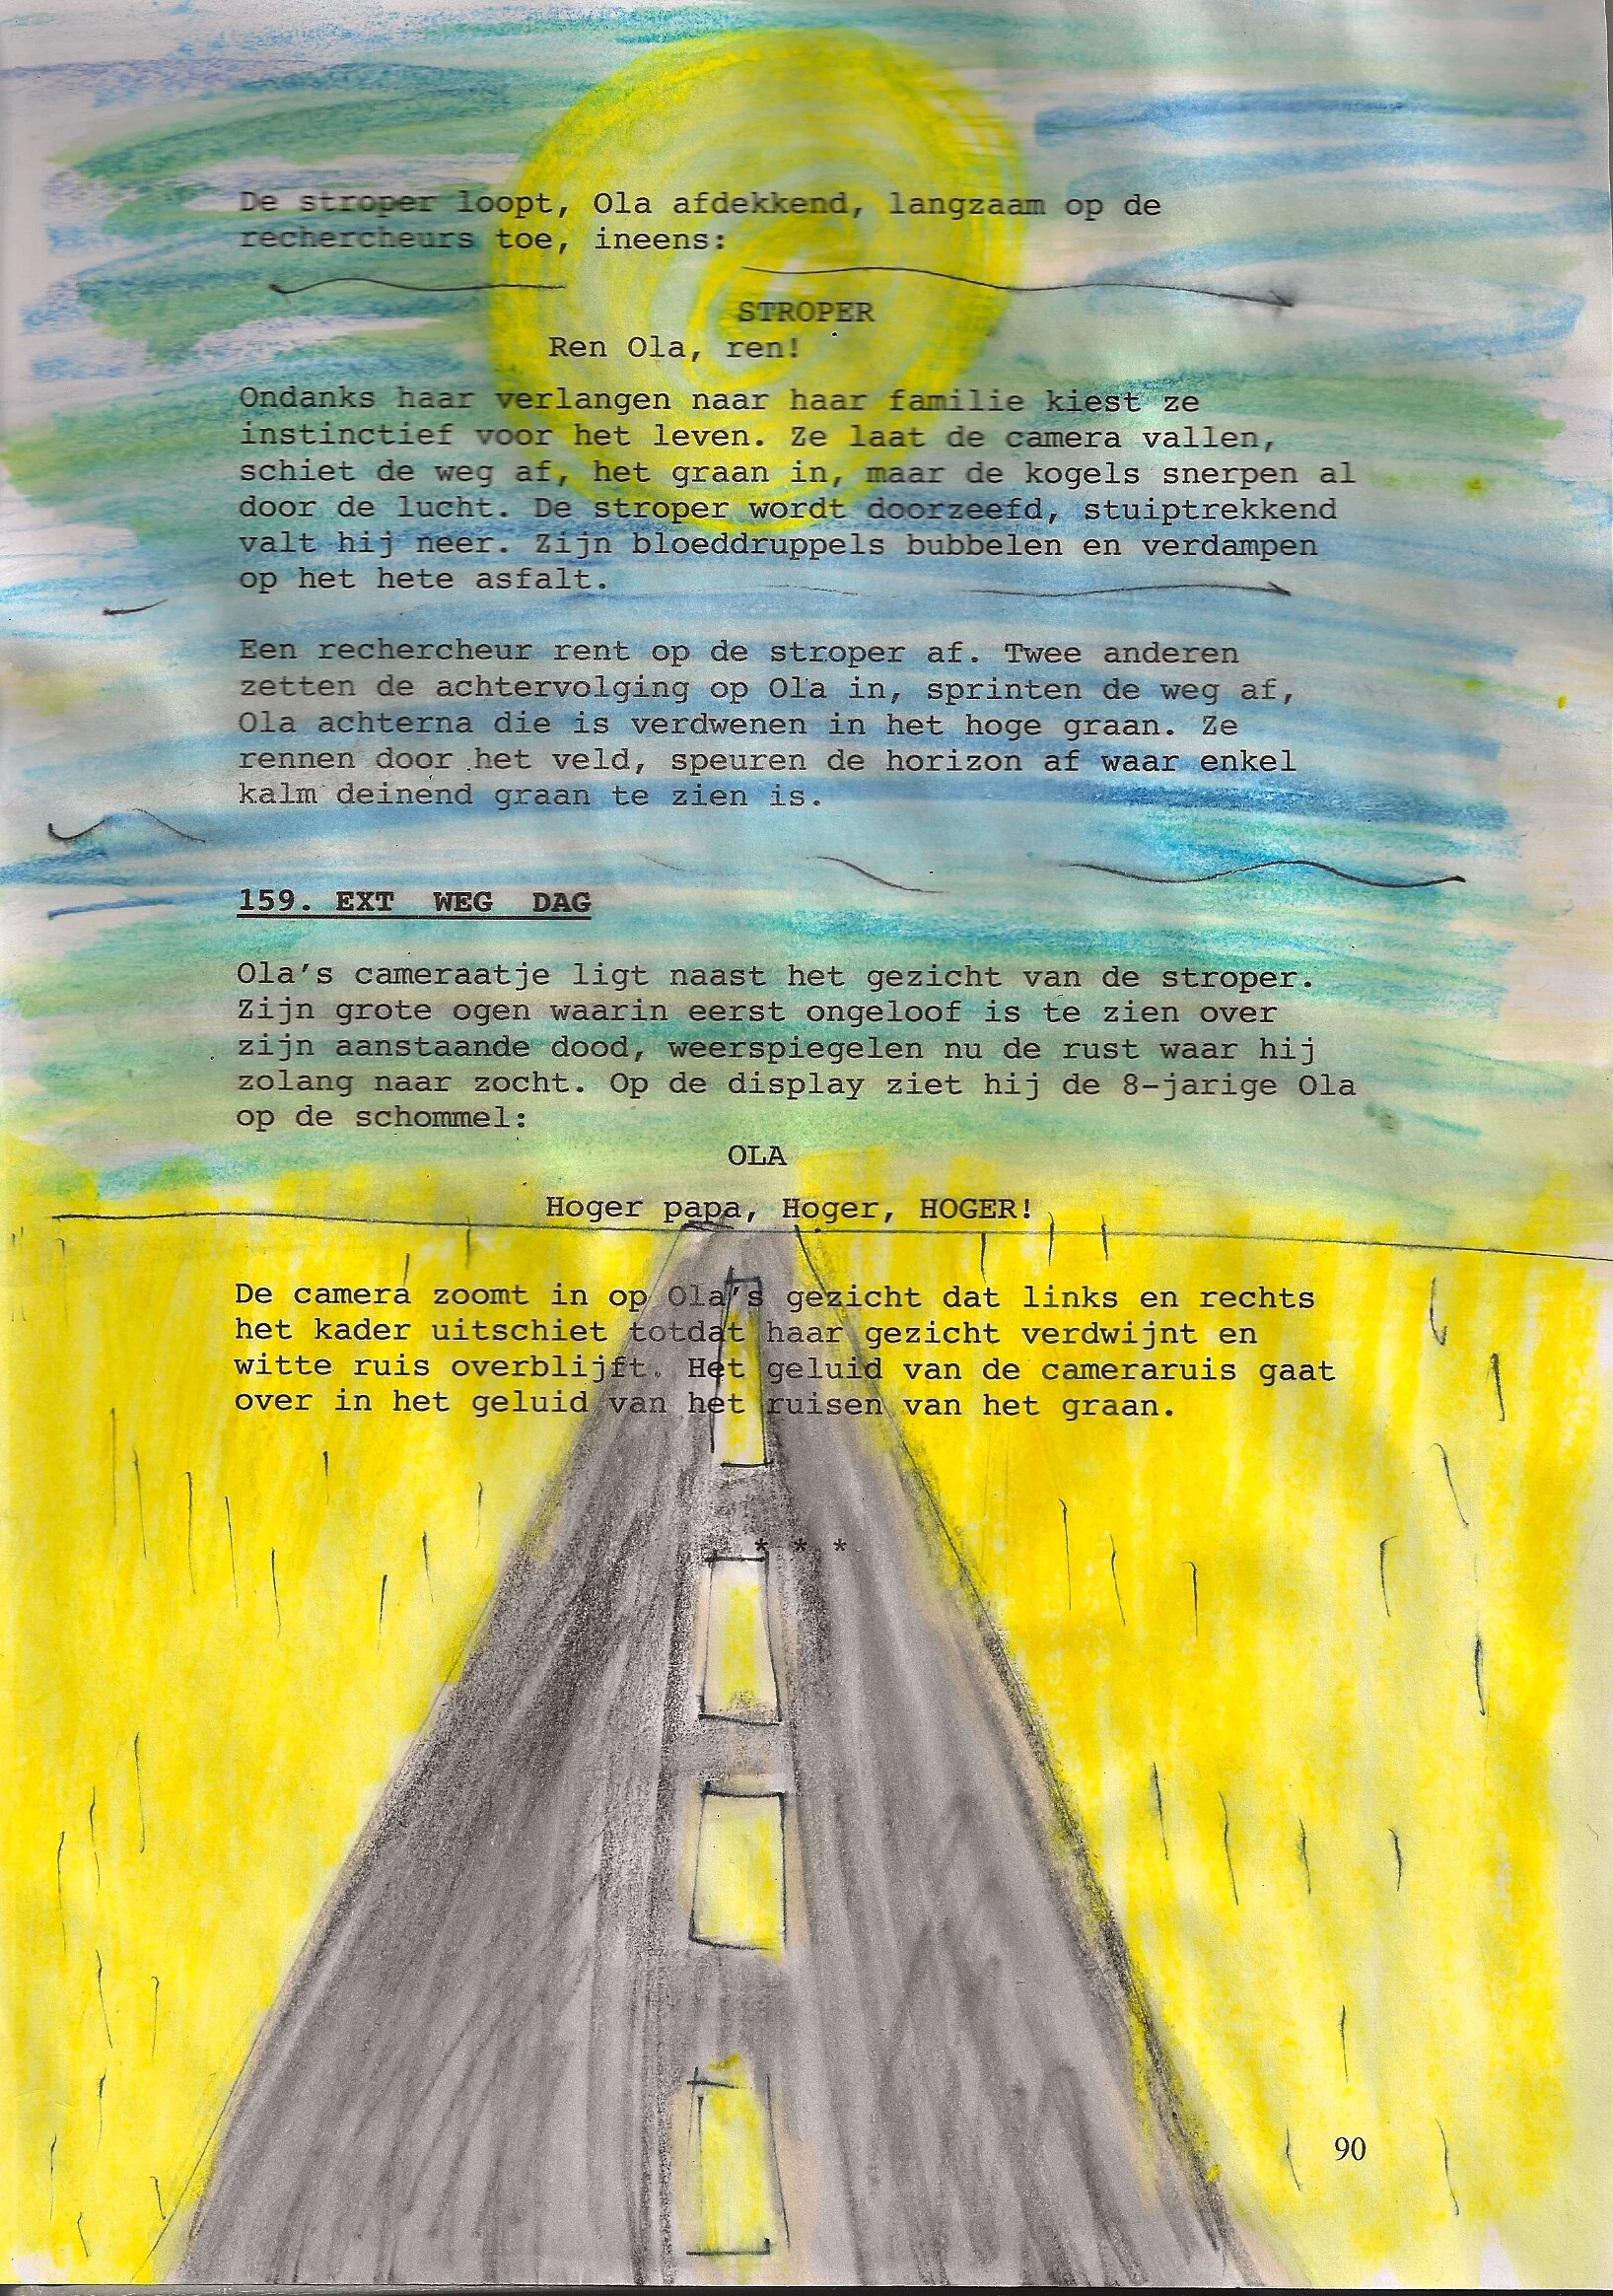 De stroper loopt, Ola afdekkend, langzaam op de
rechercheurs toe, ineens:
STROPER
Ren Ola, ren!
Ondanks haar verlangen naar haar familie kiest ze
instinctief voor het leven. Ze laat de camera vallen,
schiet de weg af, het graan in, maar de kogels snerpen al
door de lucht. De stroper wordt doorzeefd, stuiptrekkend
valt hij neer. Zijn bloeddruppels bubbelen en verdampen
op het hete asfalt.
Een rechercheur rent op de stroper af. Twee anderen
zetten de achtervolging op Ola in, sprinten de weg af,
Ola achterna die is verdwenen in het hoge graan. Ze
rennen door het veld, speuren de horizon af waar enkel
kalm deinend graan te zien is.
159. EXT WEG DAG
Ola's cameraatje ligt naast het gezicht van de stroper.
Zijn grote ogen waarin eerst ongeloof is te zien over
zijn aanstaande dood, weerspiegelen nu de rust waar hij
zolang naar zocht. Op de display ziet hij de 8-jarige Ola
op de schommel:
OLA
Hoger papa, Hoger, HOGER!
De camera zoomt in op Ola's gezicht dat links en rechts
het kader uitschiet totdat haar gezicht verdwijnt en
witte ruis overblijft. Het geluid van de cameraruis gaat
over in het geluid van het ruisen van het graan.
* * *
90